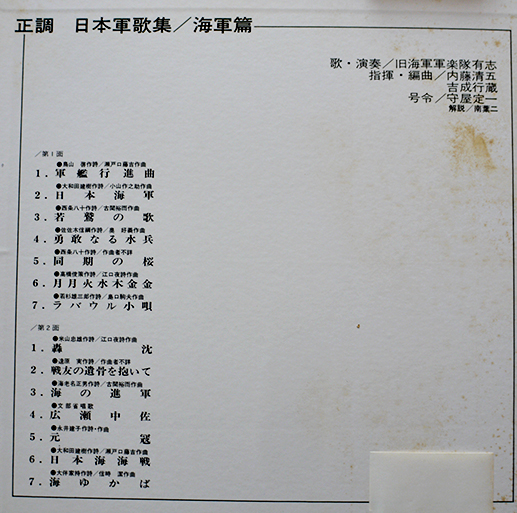 正調 日本軍歌集／海軍篇
歌・演奏／旧海軍軍楽隊有志
指揮・編曲／内藤清五
吉成行蔵
号令／守屋定一
解説／南葉二
／第1面
●鳥山 啓作詩／瀬戸口藤吉作曲
1．軍艦行進曲
●大和田建樹作詩／小山作之助作曲
2．日本海軍
●西条八十作詩／古関裕而作曲
3．若鷲の歌
●佐佐木信綱作詩／奥 好義作曲
4．勇敢なる水兵
●西条八十作詩／作曲者不詳
5．同期の桜
●高橋俊策作詩／江口夜詩作曲
6．月月火水木金金
●若杉雄三郎作詩／島口駒夫作曲
7．ラバウル小唄
／第2面
●米山忠雄作詩／江口夜詩作曲
1．轟沈
●逵原 実作詩／作曲者不詳
2．戦友の遺骨を抱いて
●海老名正男作詩／古関裕而作曲
3．海の進軍
●文部省唱歌
4．広瀬中佐
●永井建子作詩・作曲
5．元寇
●大和田建樹作詩／瀬戸口藤吉作曲
6．日本海海戦
●大伴家持作詩／信時 潔作曲
7．海ゆかば